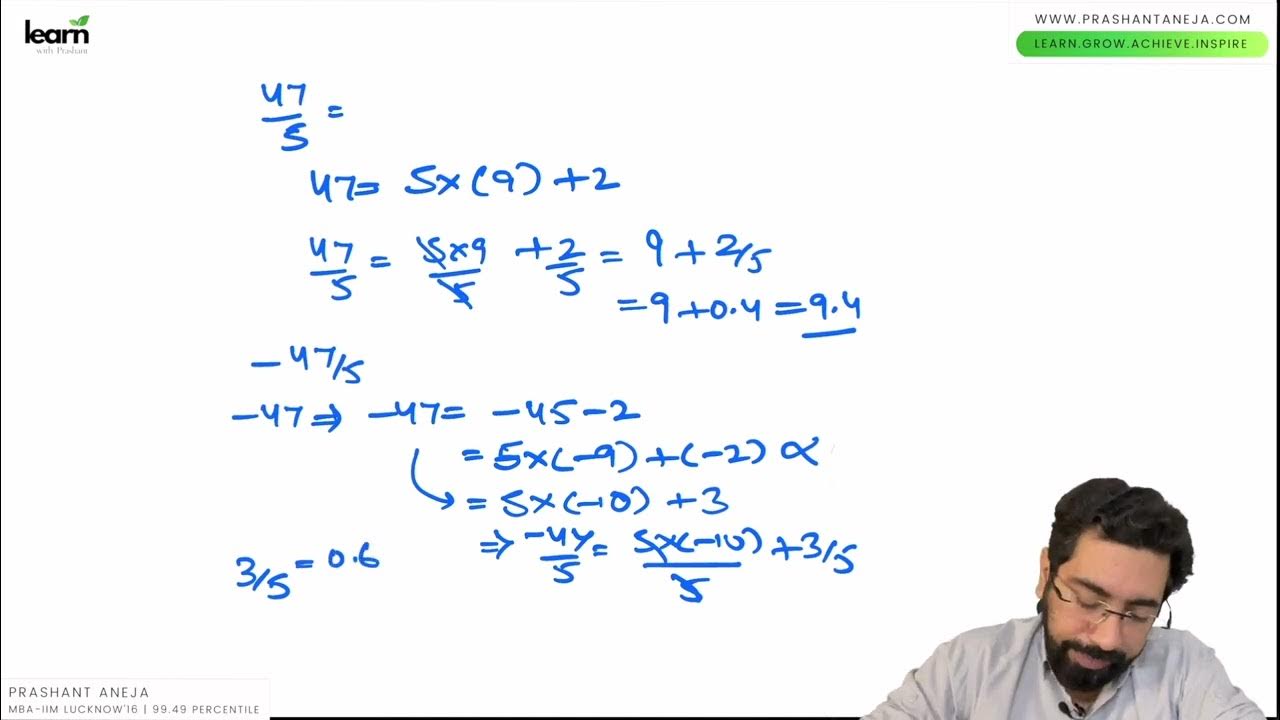 learn
with Prashant
WWW.PRASHANTANEJA.COM
LEARN.GROW.ACHIEVE.INSPIRE
47/5 =
47 = 5×(9) +2
47/5 = 5×9/5 + 2/5 = 9 + 2/5
= 9 + 0.4 = 9.4
-47/5
-47 ⇒ -47 = -45 - 2
= 5×(-9) + (-2) ∝
= 5×(-10) + 3
⇒ -47/5 = 5×(-10)/5 + 3/5
3/5 = 0.6
PRASHANT ANEJA
MBA-IIM LUCKNOW'16 | 99.49 PERCENTILE